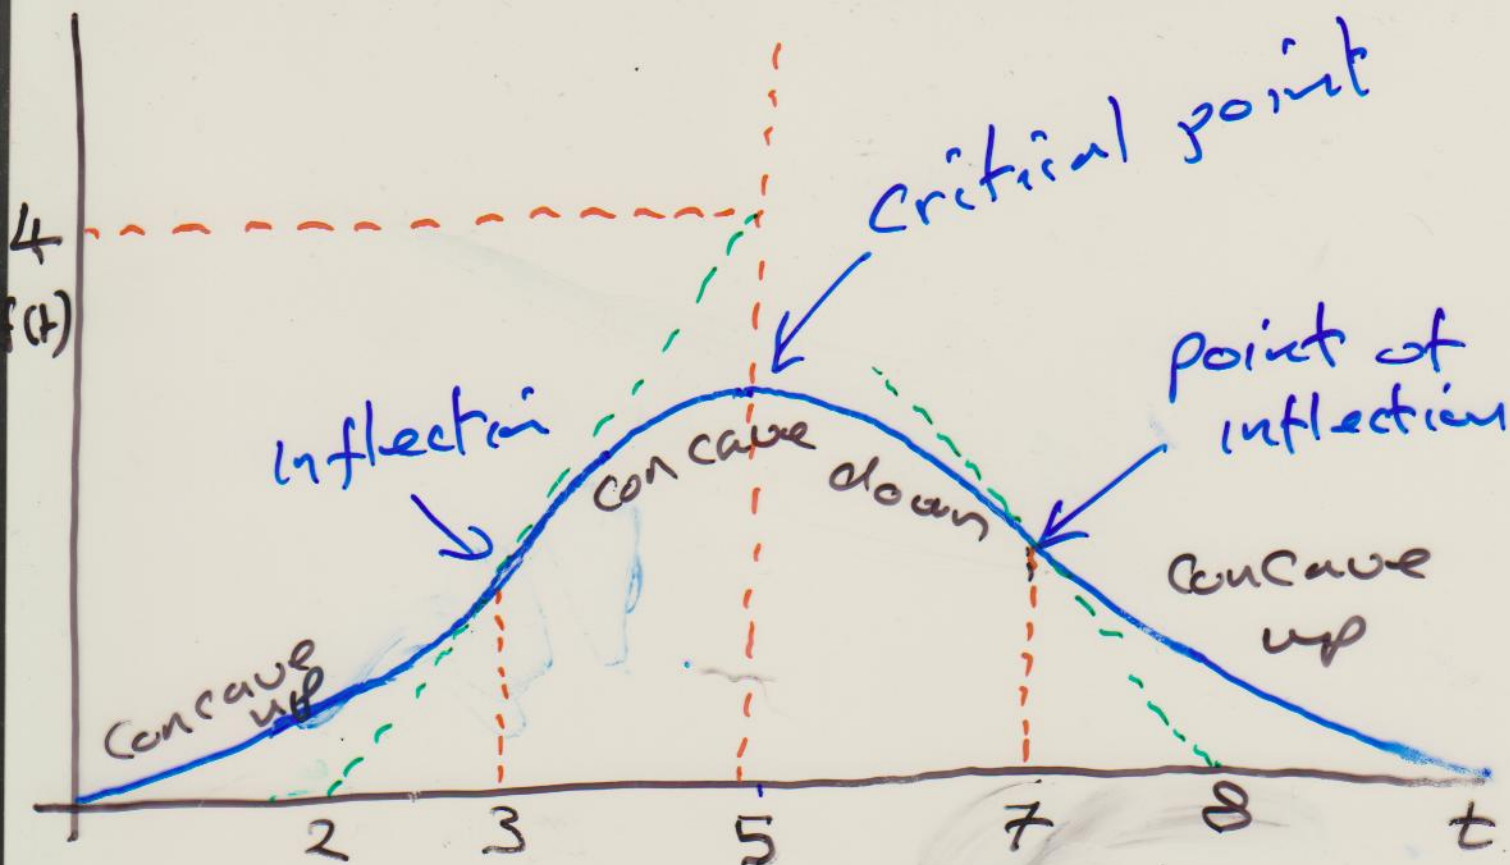 critical point
4
f(t)
point of
inflection
inflection
concave
down
concave
up
concave
up
2 3 5 7 8 t